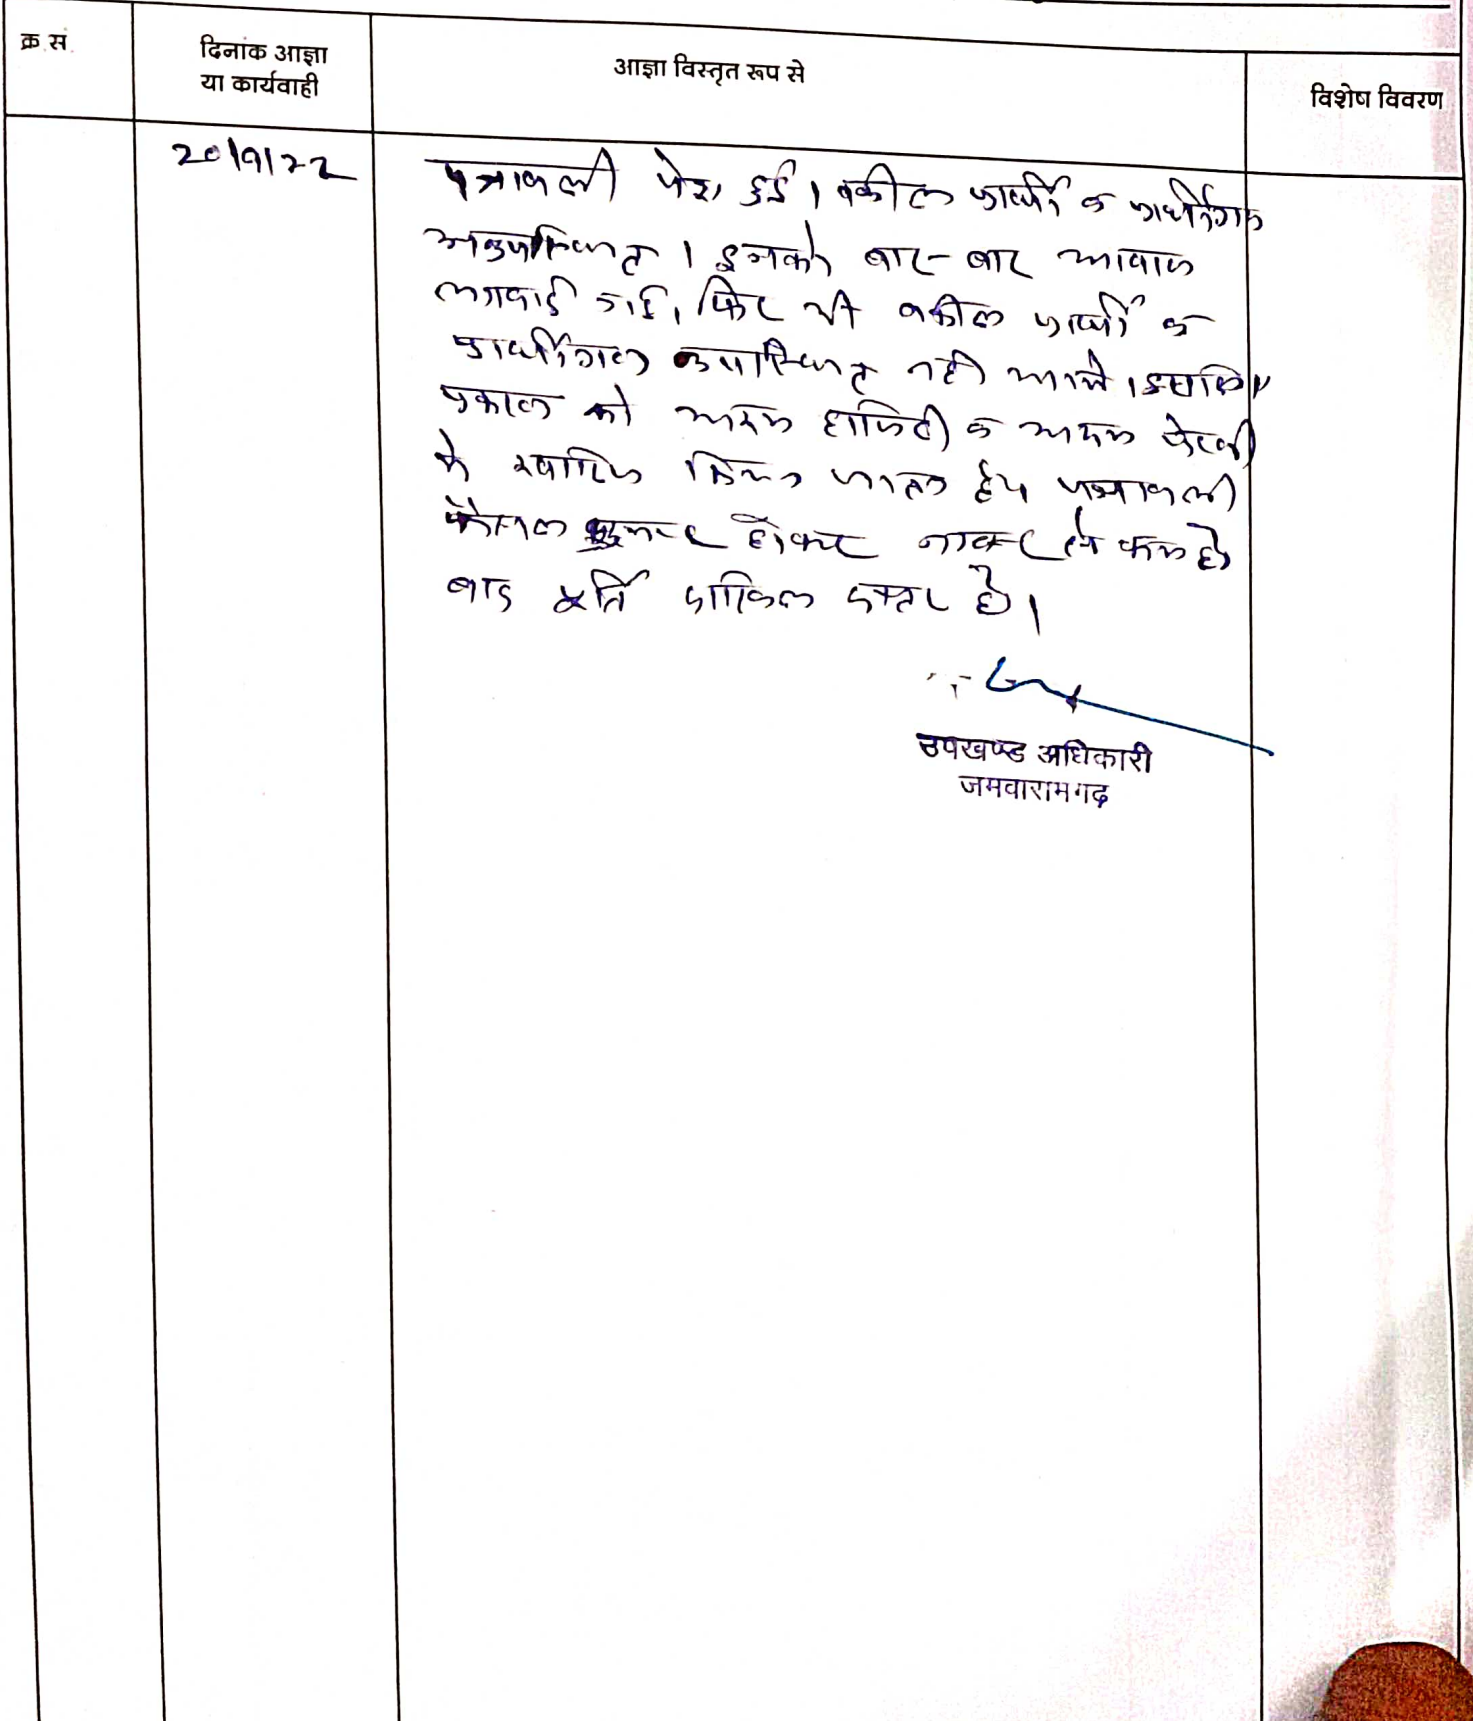 क्र.सं.
दिनांक आज्ञा
या कार्यवाही
आज्ञा विस्तृत रूप से
विशेष विवरण
20/9/22
पत्रावली पेश हुई। वकील प्रार्थी व प्रार्थीगण
अनुपस्थित। इनको बार-बार आवाज
लगवाई गई, फिर भी वकील प्रार्थी व
प्रार्थीगण उपस्थित नहीं आये। इसलिए
प्रकरण को अदम हाजिरी व अदम पैरवी
मे खारिज किया जाता है। पत्रावली
फैसल शुमार होकर नम्बर से कम हो
बाद पूर्ति दाखिल दफ्तर हो।
उपखण्ड अधिकारी
जमवारामगढ